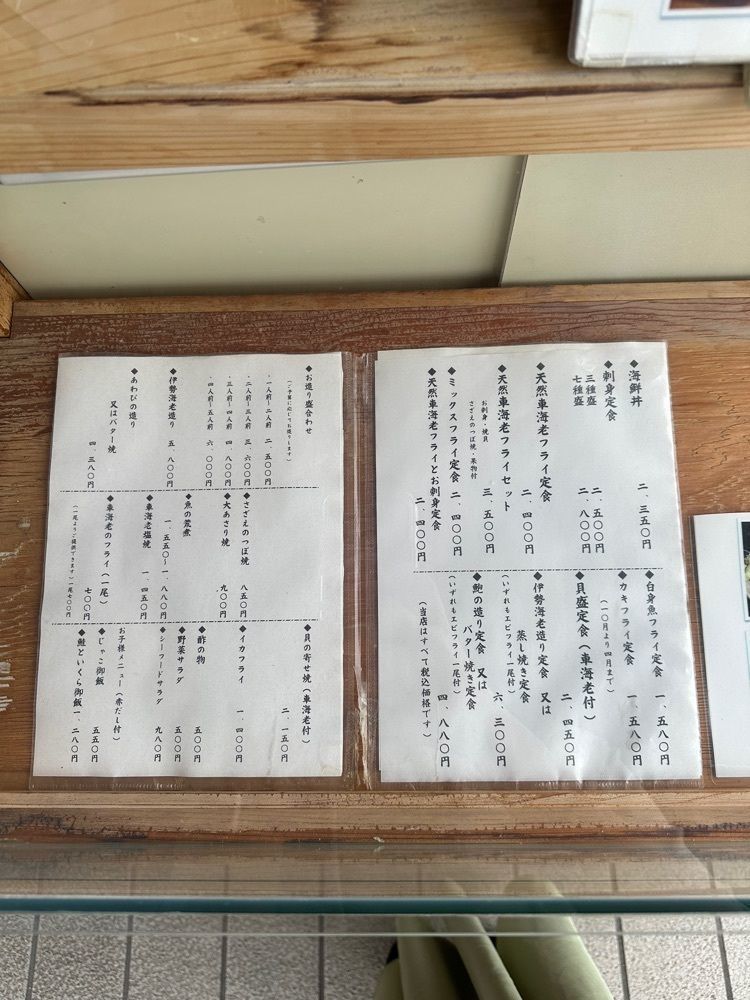 ◆海鮮丼 二、三五〇円
◆刺身定食
三種盛 二、五〇〇円
七種盛 二、八〇〇円
◆天然車海老フライ定食 二、四〇〇円
◆天然車海老フライセット 三、五〇〇円
お刺身・焼貝
さざえのつぼ焼・果物付
◆ミックスフライ定食 二、四〇〇円
◆天然車海老フライとお刺身定食 二、四〇〇円
◆白身魚フライ定食 一、五八〇円
◆カキフライ定食 一、五八〇円
(一〇月より四月まで)
◆貝盛定食(車海老付) 二、四五〇円
◆伊勢海老造り定食 又は
蒸し焼き定食 六、三〇〇円
(いずれもエビフライ一尾付)
◆鮑の造り定食 又は
バター焼き定食 四、八八〇円
(いずれもエビフライ一尾付)
(当店はすべて税込価格です)
◆お造り盛合わせ
(ご予算に応じてお造りします)
・一人前〜二人前 二、五〇〇円
・二人前〜三人前 三、六〇〇円
・三人前〜四人前 四、八〇〇円
・四人前〜五人前 六、〇〇〇円
◆伊勢海老造り 五、八〇〇円
◆あわびの造り
又はバター焼 四、三八〇円
◆さざえのつぼ焼 八五〇円
◆大あさり焼 九〇〇円
◆魚の荒煮
一、五五〇〜一、八八〇円
◆車海老塩焼 一、四五〇円
◆車海老のフライ(一尾) 七〇〇円
(一尾よりご提供できます)一尾七〇〇円
◆貝の寄せ焼(車海老付) 二、一五〇円
◆イカフライ 一、四〇〇円
◆酢の物 五五〇円
◆野菜サラダ 五〇〇円
◆シーフードサラダ 九八〇円
お子様メニュー(赤だし付)
◆じゃこ御飯 五五〇円
◆鮭といくら御飯 一、二八〇円